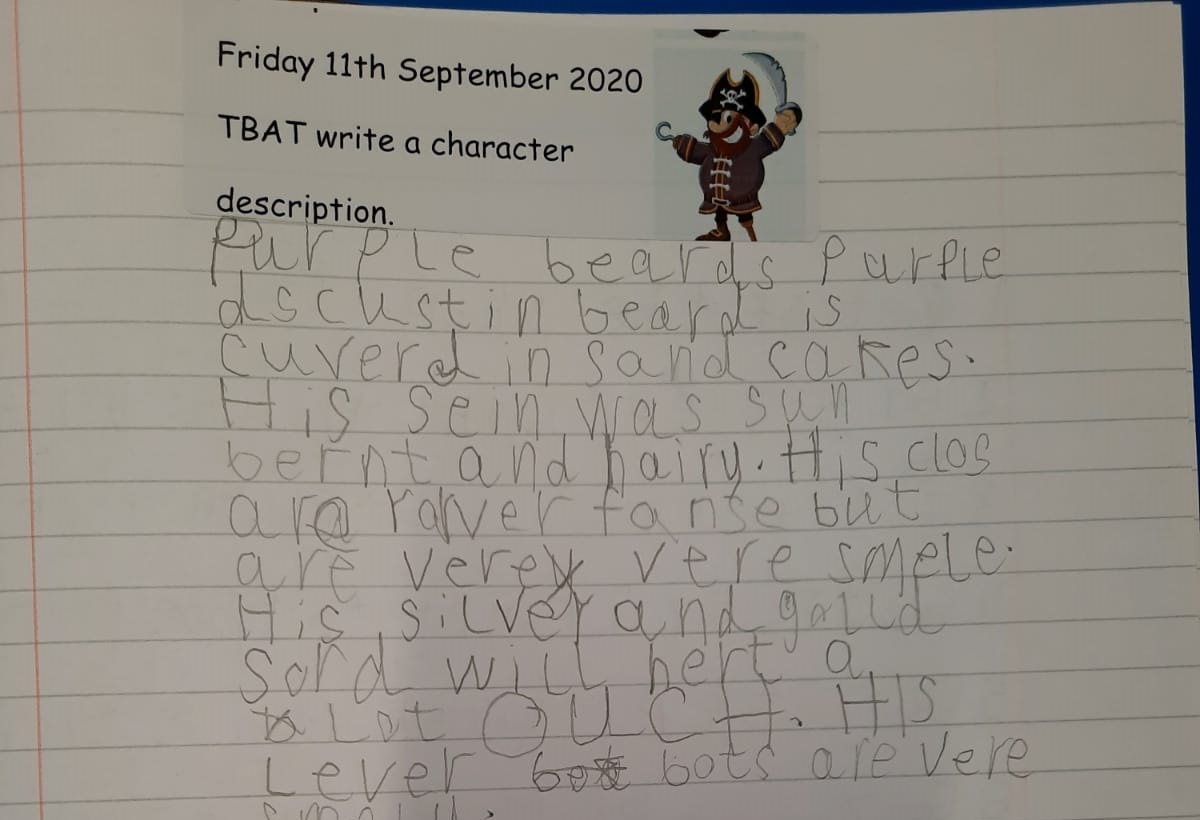 Friday 11th September 2020
TBAT write a character
description.
Purple beards Purple
dscustin beard is
cuverd in sand cakes.
His Scin was sun
bernt and hairy. His clos
are rarver fanse but
are verey vere smele.
His silver and golld
Sord will hert a
Lot OUCH. HIS
Lever bots are vere